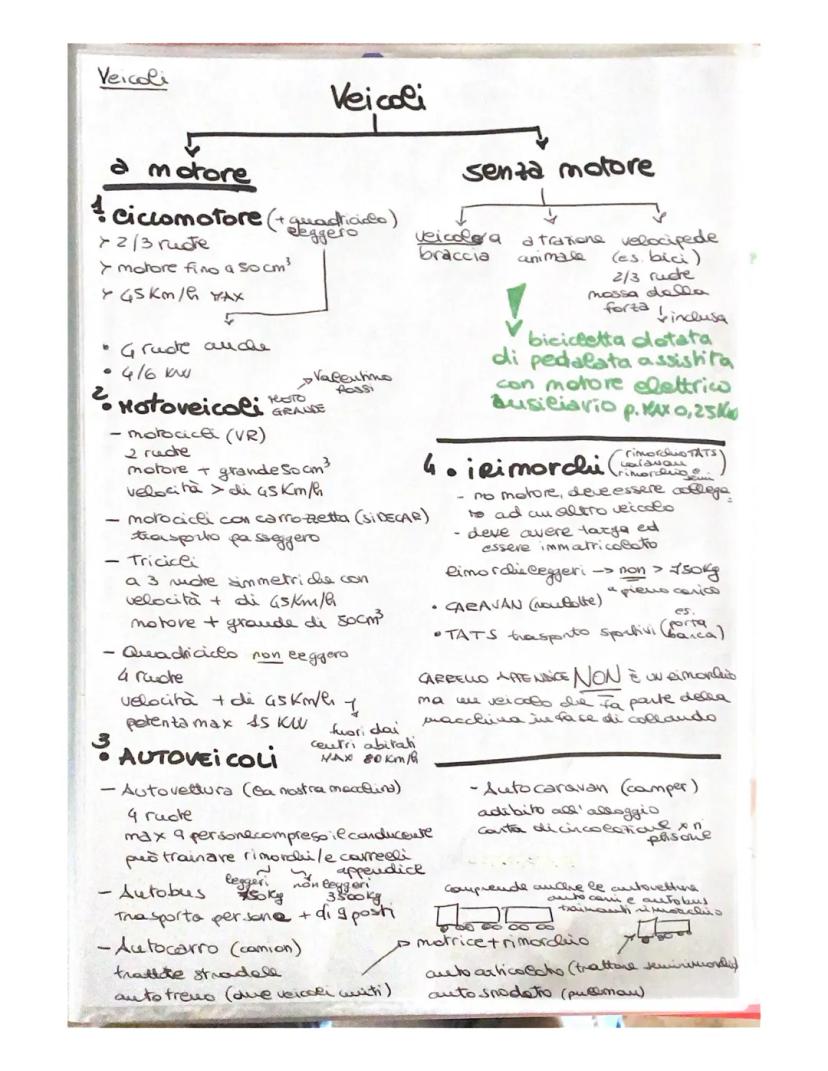 Veicoli
Veicoli
a motore
senza motore
1. ciclomotore (+ quadriciclo
leggero)
2/3 ruote
motore fino a 50 cm³
45 Km/h MAX
• 4 ruote anche
• 4/6 KW
veicolo a
braccia
a trazione
animale
velocipede
(es. bici)
2/3 ruote
mossa dalla
forza
inclusa
bicicletta dotata
di pedalata assistita
con motore elettrico
ausiliario p. MAX 0,25 Kw
2. MOTOVEICOLI MOTO
GRANDE
Valentino
Rossi
- motocicli (VR)
2 ruote
motore + grande 50 cm³
velocità > di 45 Km/h
- motocicli con carrozzetta (SIDECAR)
trasporto passeggero
- Tricicli
a 3 ruote simmetriche con
velocità + di 45 Km/h
motore + grande di 50 cm³
- Quadriciclo non leggero
4 ruote
velocità + di 45 Km/h
potenta max 15 KW
fuori dai
centri abitati
MAX 80 Km/h
4. i rimorchi (rimorchio TATS
caravan
rimorchio e
semi)
- no motore, deve essere collega
to ad un altro veicolo
- deve avere targa ed
essere immatricolato
rimorchi leggeri → non > 750 Kg
a pieno carico
• CARAVAN (roulotte)
• TATS trasporto sportivi (es.
porta
barca)
CARRELLO APPENDICE NON è un rimorchio
ma un veicolo che fa parte della
macchina in fase di collaudo
3. AUTOVEICOLI
- Autovettura (la nostra macchina)
4 ruote
max 9 persone compreso il conducente
può trainare rimorchi/e carrelli
appendice
leggeri
750 Kg
non leggeri
3500 Kg
- Autobus
trasporta persone + di 9 posti
- Autocarro (camion)
trattore stradale
autotreno (due veicoli uniti)
- Autocaravan (camper)
adibito all'alloggio
carta di circolazione x n
persone
comprende anche le autovetture
autocarri e autobus
trainanti rimorchio
motrice + rimorchio
auto articolato (trattore semirimorchio)
auto snodato (pullman)